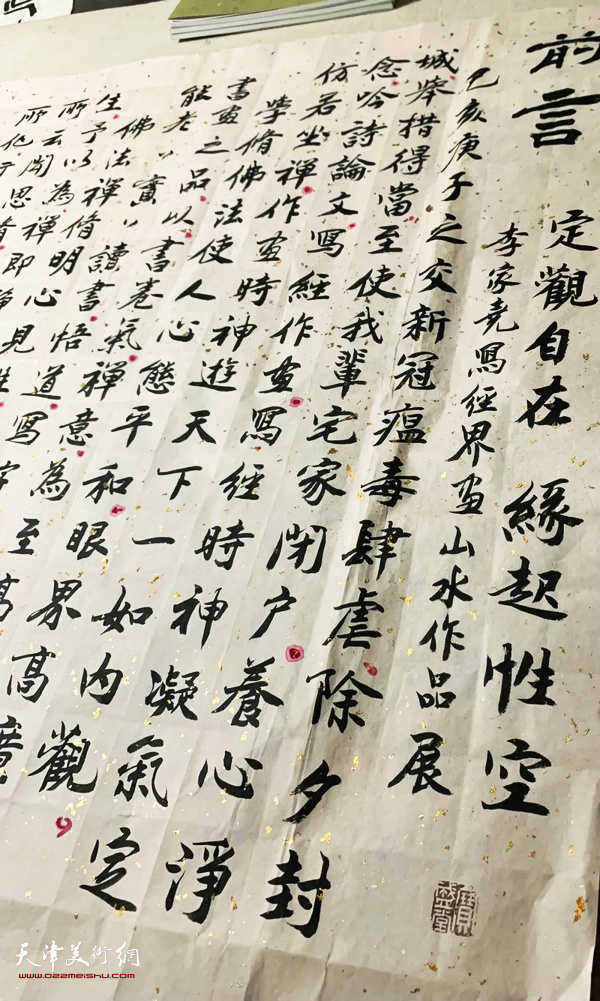 前言 定觀自在 緣起性空
李家堯寫經界画山水作品展
己亥庚子之交新冠瘟毒肆虐除夕封
城舉措得當至使我輩宅家閉户養心淨
念吟詩論文寫經作画寫經時神凝氣定
仿若坐禪作画時神遊天下一如内觀
學脩佛法使人心態平和眼界高廣
書画之品以書卷氣禪意為至高
能老〻實〻讀書悟道寫字
佛法禪脩明心見性
生予以為禪即
所云聞思
所
天津美術網
www.022meishu.com